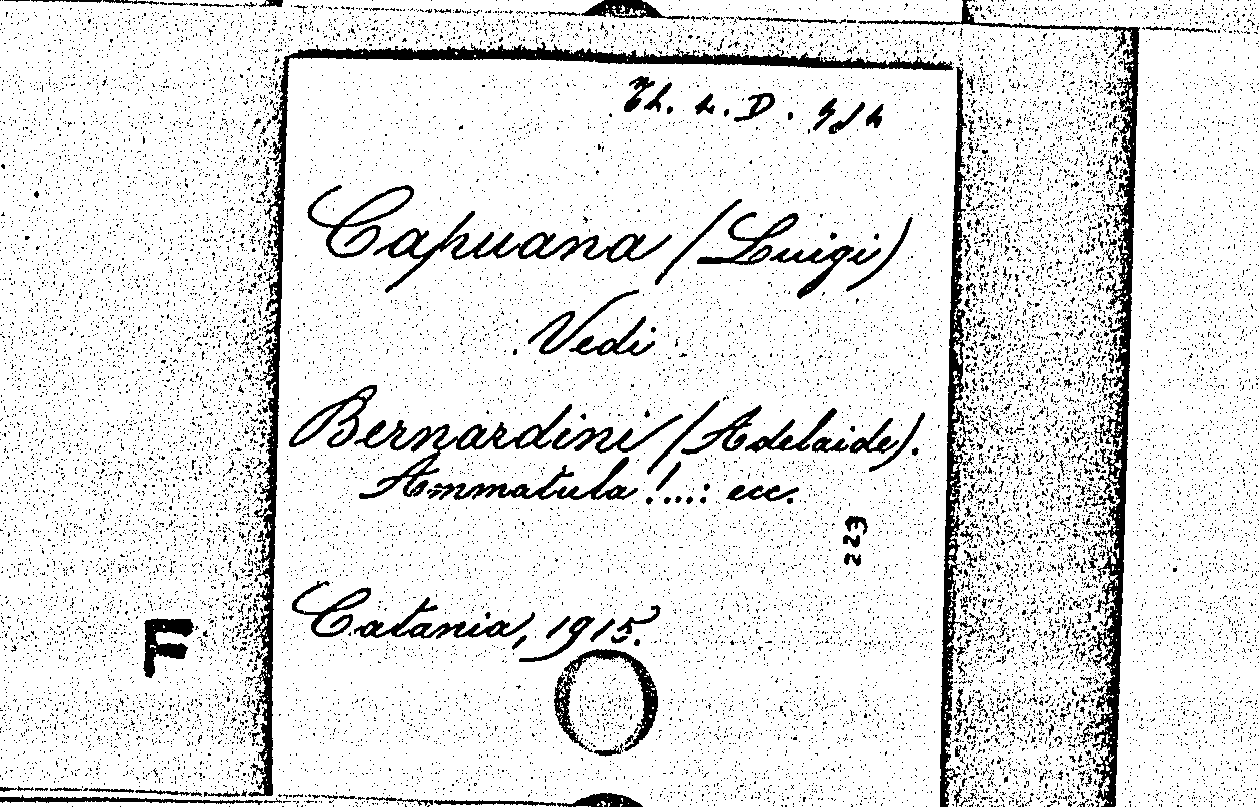 Capuana (Luigi)
Vedi
Bernardini (Adelaide).
Ammatula!...: ecc.
223
Catania, 1915.
F